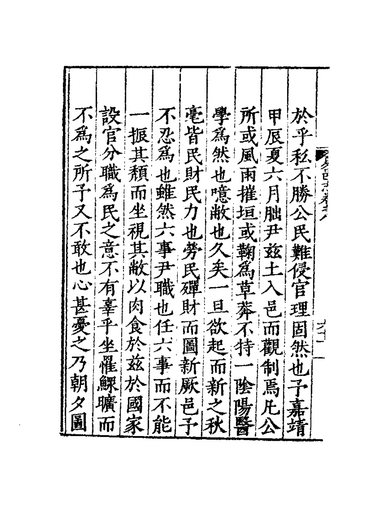 於乎私不勝公民難侵官理固然也予嘉靖
甲辰夏六月朏尹茲土入邑而觀制焉凡公
所或風雨摧垣或鞠為草莽不特一陰陽醫
學為然也噫敝也久矣一旦欲起而新之秋
毫皆民財民力也勞民殫財而圖新厥邑予
不忍為也雖然六事尹職也任六事而不能
一振其頽而坐視其敝以肉食於茲於國家
設官分職為民之意不有辜乎坐罹鰥曠而
不為之所予又不敢也心甚憂之乃朝夕圖